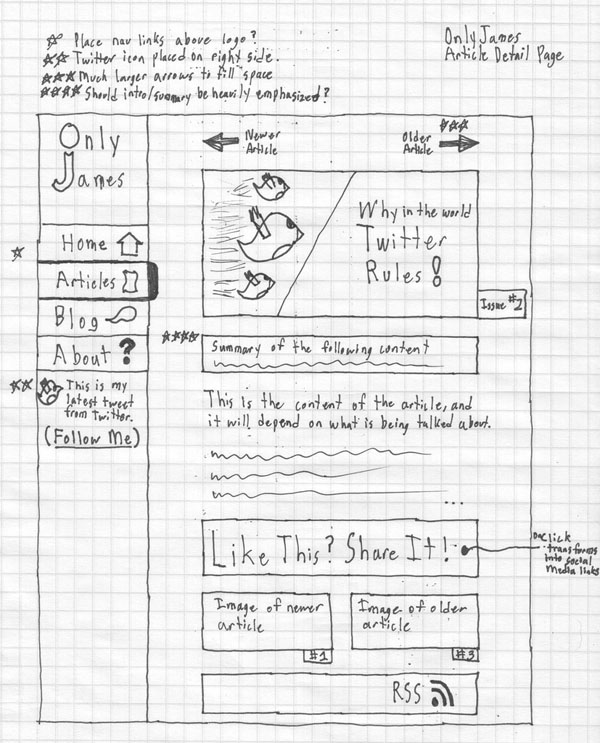 ☆ Place nav links above logo?
☆☆ Twitter icon placed on right side.
☆☆☆ Much larger arrows to fill space
☆☆☆☆ Should intro/summary be heavily emphasized?
OnlyJames
Article Detail Page
Only
James
☆
Home
Articles
Blog
About ?
☆☆
This is my
latest tweet
from Twitter.
(Follow Me)
Newer
Article
☆☆☆
Older
Article
Why in the world
Twitter
Rules!
Issue #2
☆☆☆☆
Summary of the following content
This is the content of the article, and
it will depend on what is being talked about.
...
Like This? Share It!
Onclick
transforms
into social
media links
Image of newer
article
#1
Image of older
article
#3
RSS